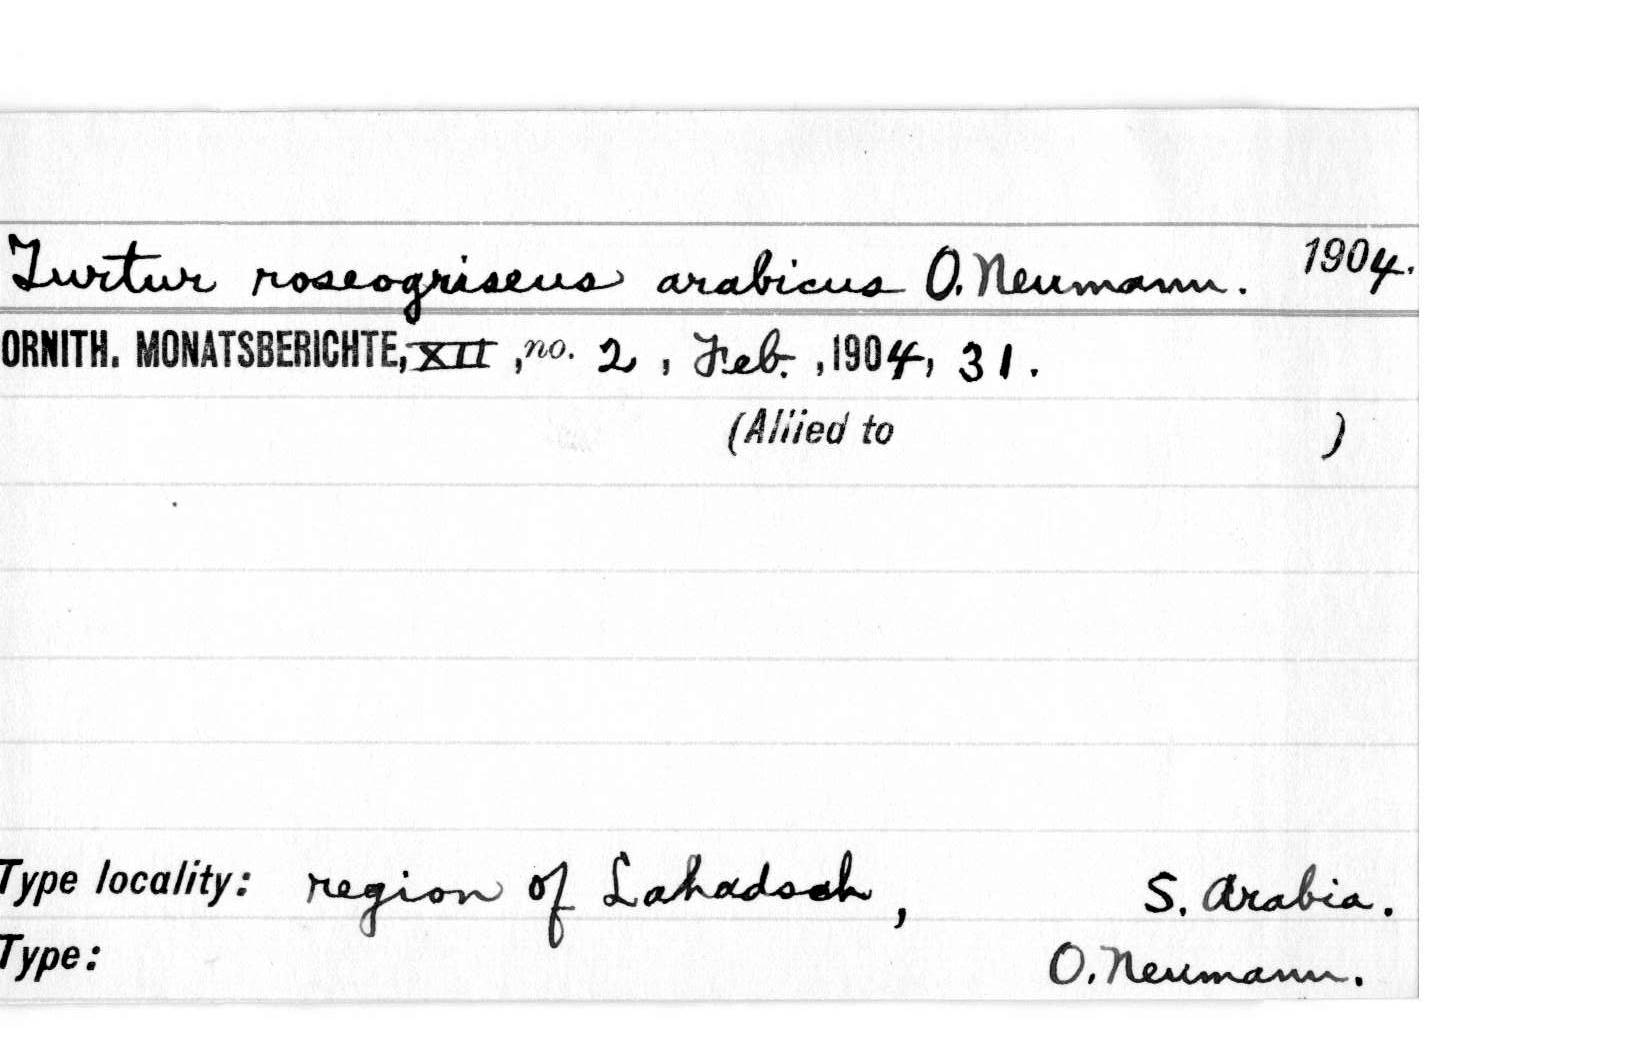 Turtur roseogriseus arabicus O. Neumann. 1904.
ORNITH. MONATSBERICHTE, XII, no. 2, Feb., 1904, 31.
(Allied to )
Type locality: region of Lahadsch, S. Arabia.
Type: O. Neumann.